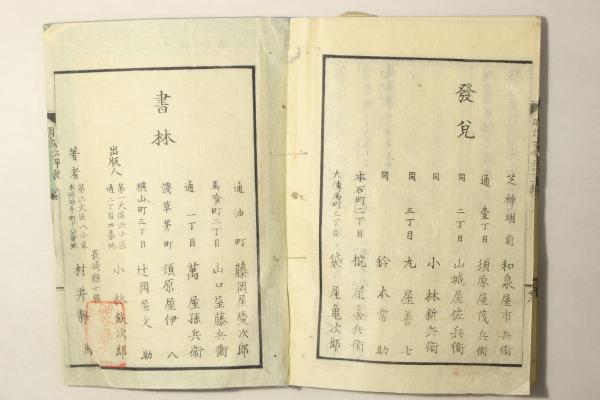 發兌
芝神明前 和泉屋市兵衛
通壹丁目 須原屋茂兵衛
同二丁目 山城屋佐兵衛
同 小林新兵衛
同三丁目 丸屋善七
同 鈴木常助
本石町二丁目 椀屋喜兵衛
大傳馬町三丁目 袋屋亀次郎
書林
通油町 藤岡屋慶次郎
馬喰町二丁目 山口屋藤兵衛
通一丁目 萬屋孫兵衛
淺草茅町 須原屋伊八
横山町三丁目 辻岡屋文助
出版人 第一大區六小區 通二丁目四番地 小林鉄次郎
長崎縣士族
著者 第六大區八小區 村井靜馬